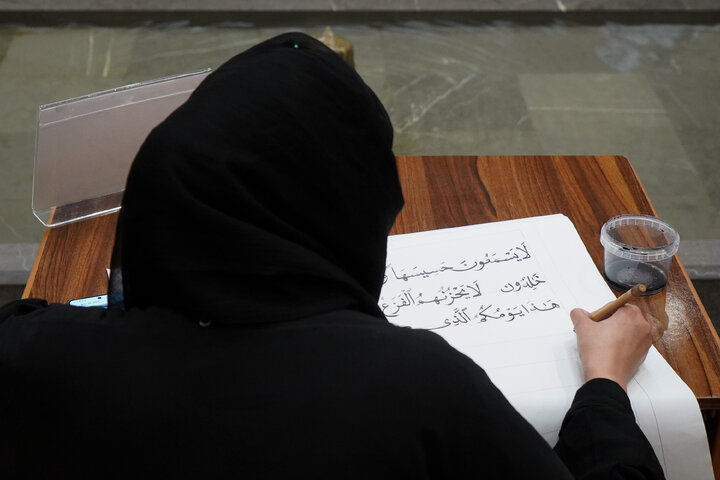 لَا يَسْمَعُونَ حَسِيسَهَا
خَٰلِدُونَ لَا يَحْزُنُهُمُ ٱلْفَزَعُ
هَٰذَا يَوْمُكُمُ ٱلَّذِي